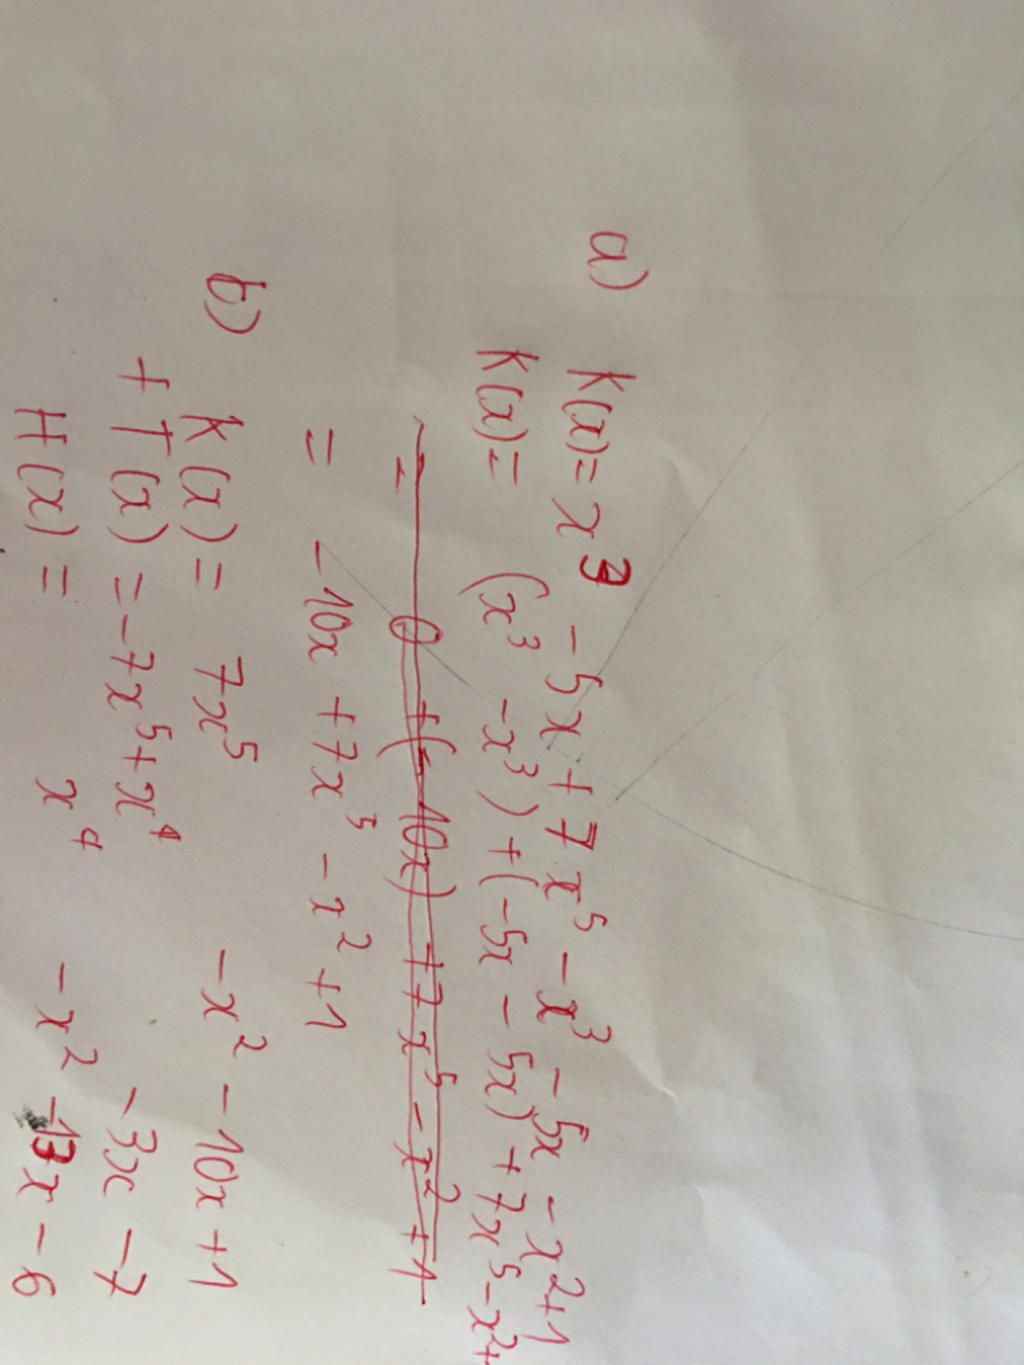 a) K(x) = x³ - 5x + 7x⁵ - x³ - 5x - x² + 1
K(x) = (x³ - x³) + (-5x - 5x) + 7x⁵ - x² +
= 0 + (-10x) + 7x⁵ - x² + 1
= -10x + 7x⁵ - x² + 1
b) K(x) = 7x⁵ - x² - 10x + 1
+ T(x) = -7x⁵ + x⁴ - 3x - 7
H(x) = x⁴ - x² - 13x - 6